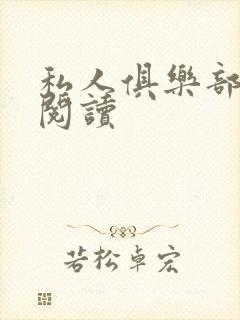 私人俱樂部
閱讀
若松卓宏